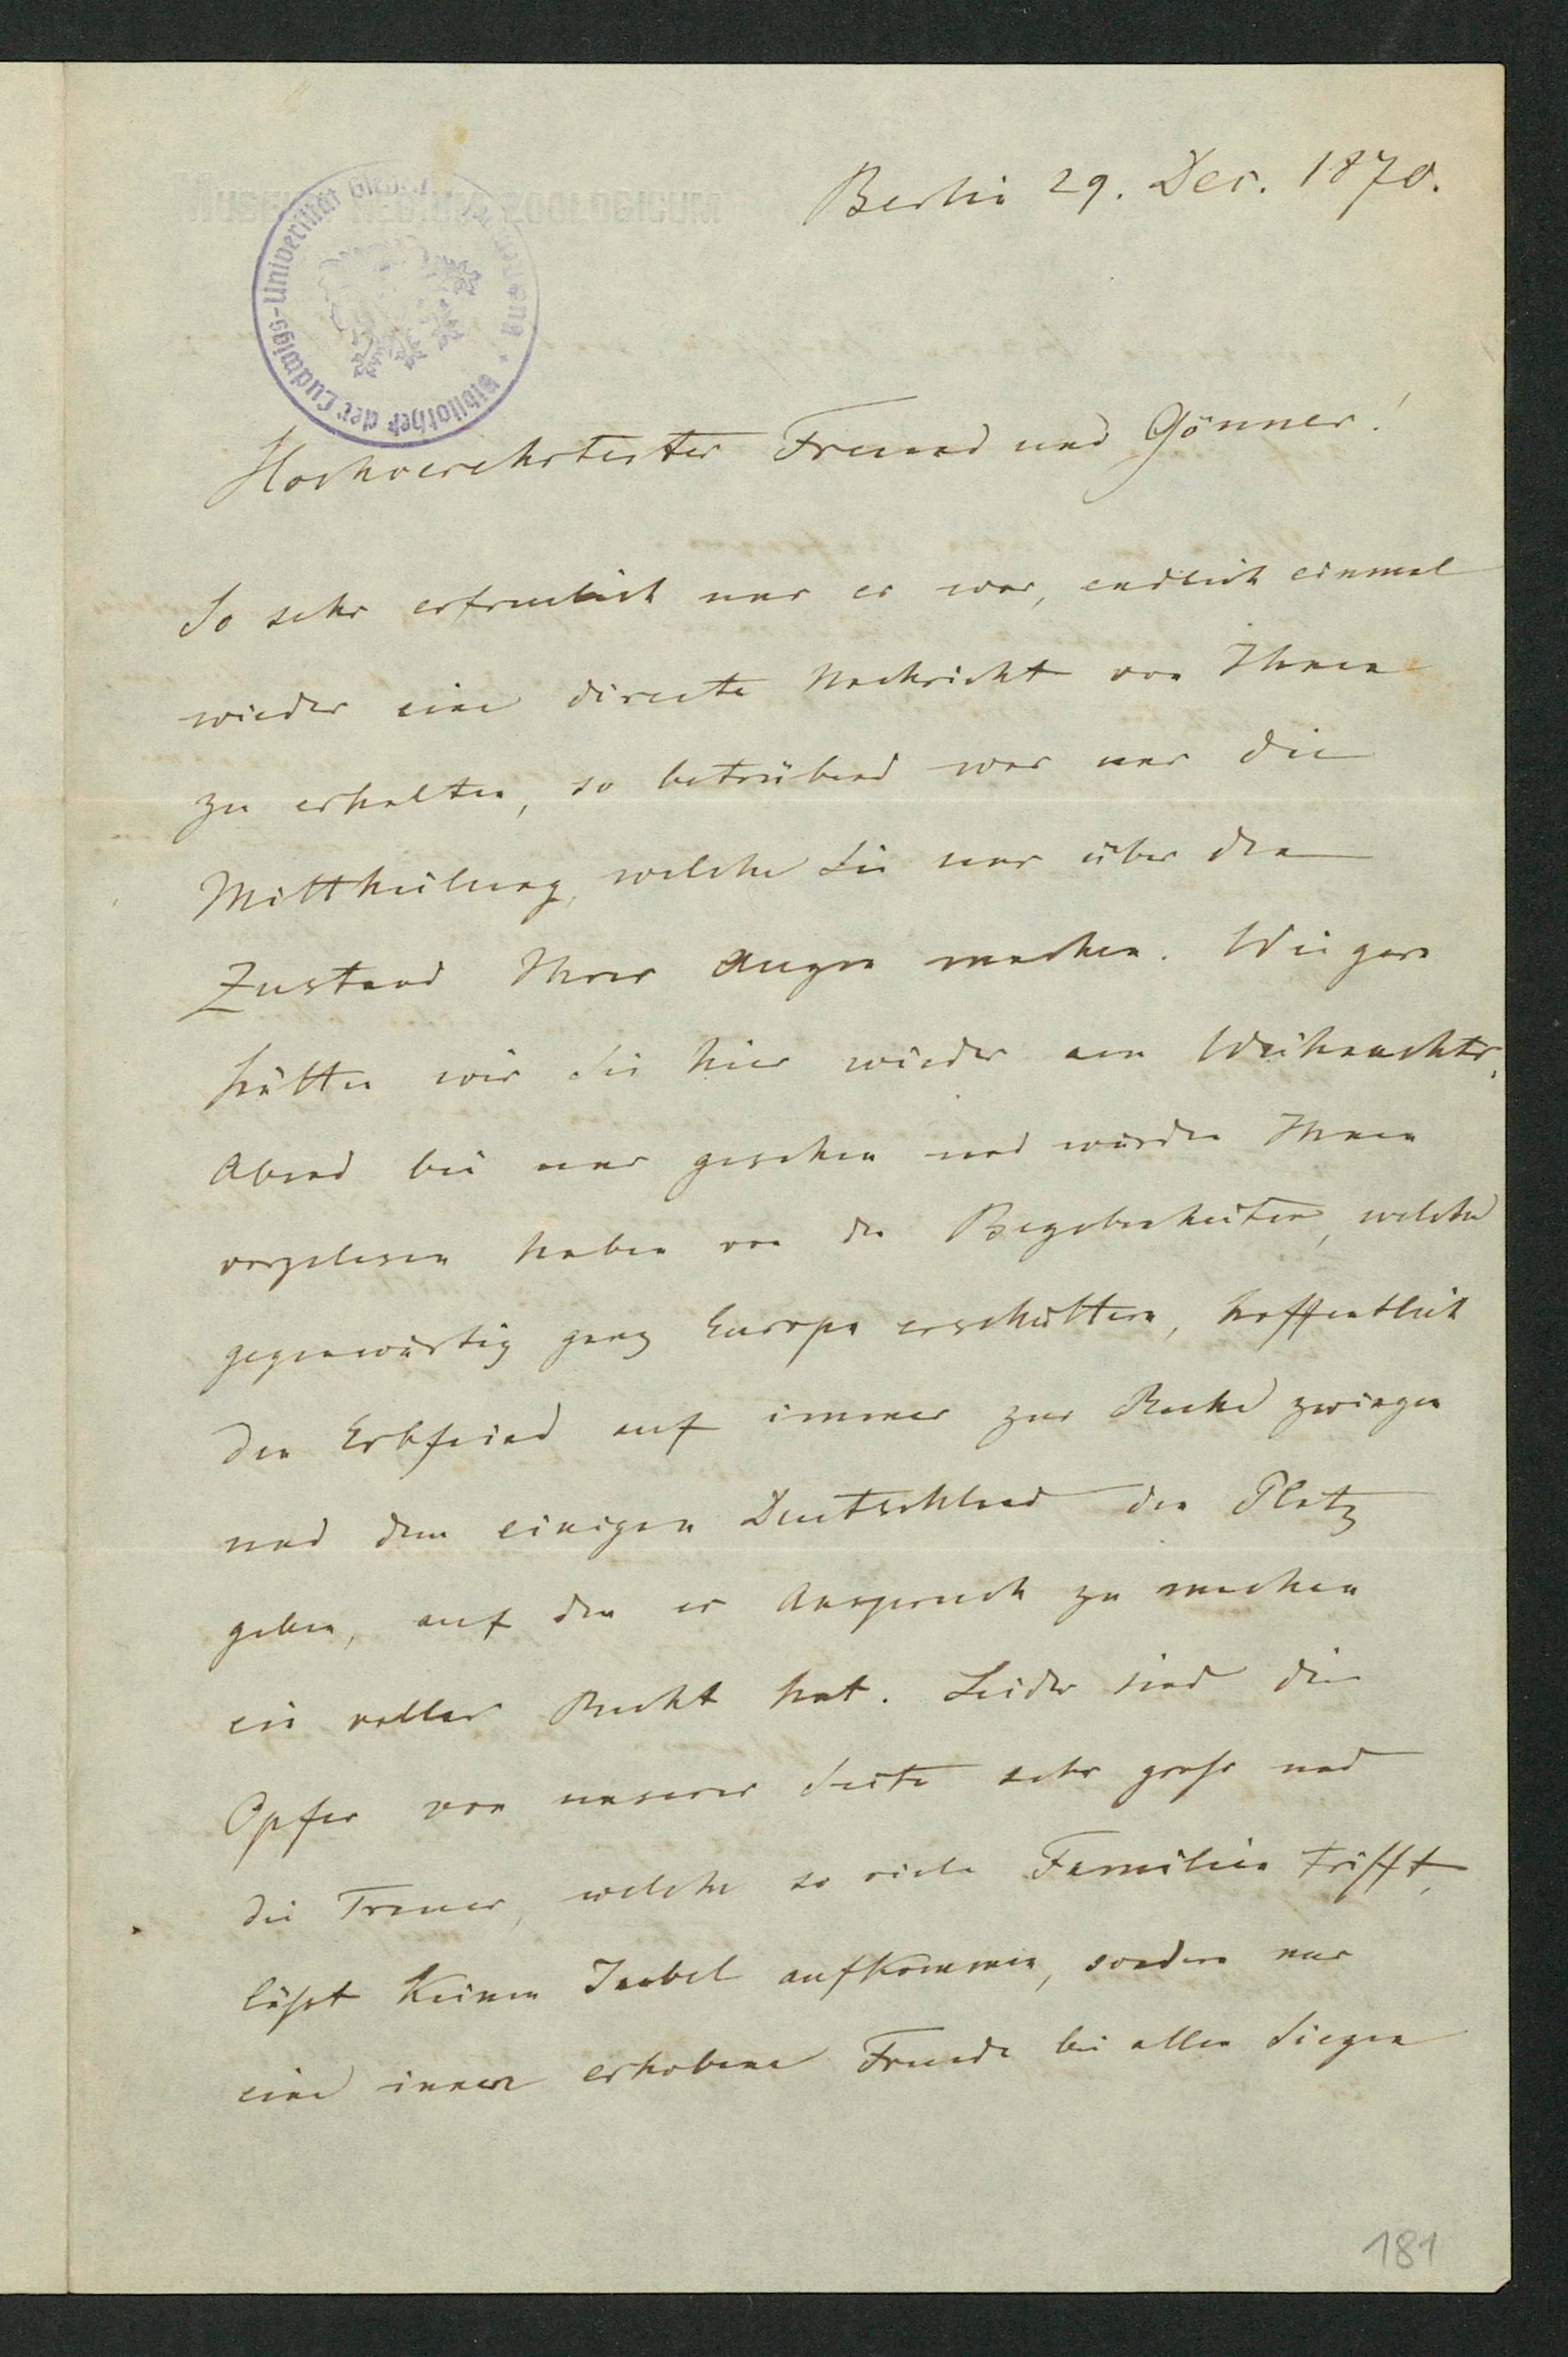 Berlin 29. Dec. 1870.
Bibliothek der Ludwigs-Universität Gießen
Hochverehrtester Freund und Gönner!
So sehr erfreulich uns es war, endlich einmal
wieder eine directe Nachricht von Ihnen
zu erhalten, so betrübend war uns die
Mittheilung, welche Sie uns über den
Zustand Ihrer Augen machen. Wie gern
hätten wir Sie hier wieder am Weihnachts-
Abend bei uns gesehen und würden Ihnen
vorgelesen haben von den Begebenheiten, welche
gegenwärtig ganz Europa erschüttern, hoffentlich
den Erbfeind auf immer zur Ruhe zwingen
und dem einigen Deutschland den Platz
geben, auf den es Anspruch zu machen
ein volles Recht hat. Leider sind die
Opfer von unserer Seite sehr groß und
die Trauer, welche so viele Familien trifft,
läßt keinen Jubel aufkommen, sondern nur
eine innere erhobene Freude bei allen Siegen
181